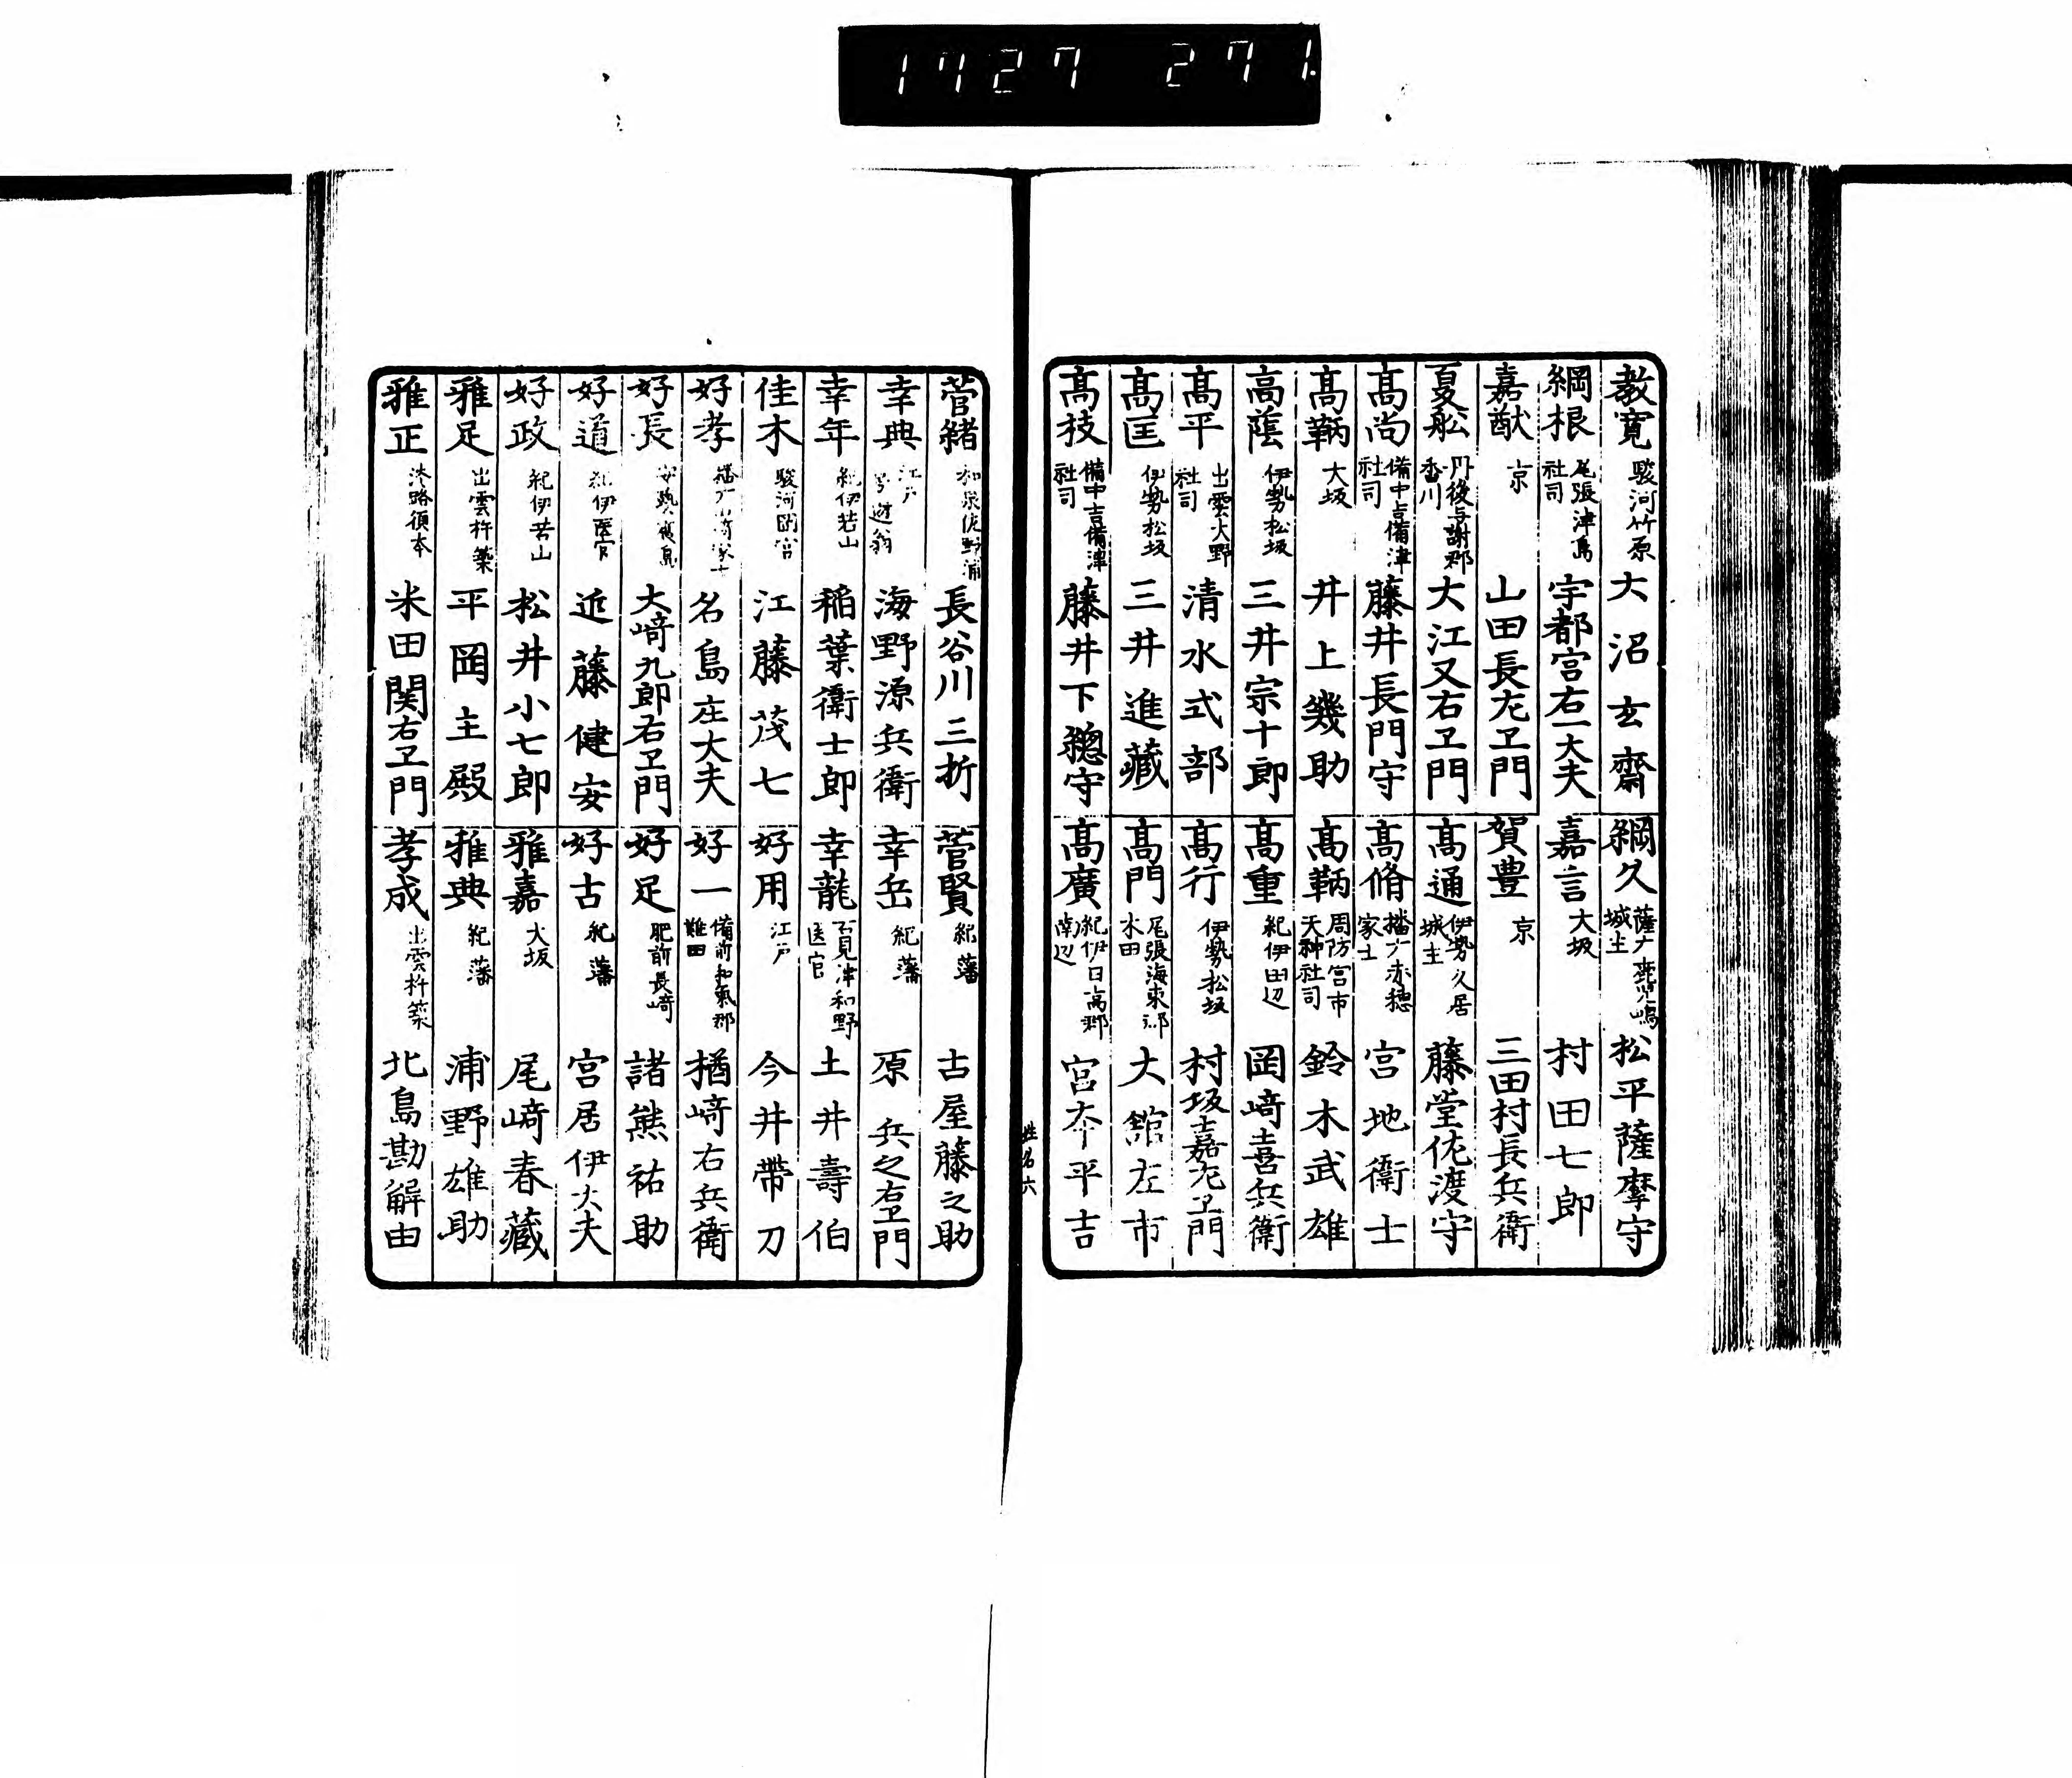 1727 271.
教寛 駿河竹原 大沼玄齋
綱根 尾張津島社司 宇都宮右一大夫
嘉猷 京 山田長左ヱ門
夏舩 丹後与謝郡香川 大江又右ヱ門
髙尚 備中吉備津社司 藤井長門守
髙鞆 大坂 井上幾助
高蔭 伊勢松坂 三井宗十郎
髙平 出雲大野社司 清水式部
髙匡 伊勢松坂 三井進藏
髙枝 備中吉備津社司 藤井下總守
綱久 薩广鹿児嶋城主 松平薩摩守
嘉言 大坂 村田七郎
賀豊 京 三田村長兵衛
髙通 伊勢久居城主 藤堂佐渡守
髙脩 播广赤穂家士 宮地衛士
髙鞆 周防宮市天神社司 鈴木武雄
髙重 紀伊田辺 岡﨑喜兵衛
髙行 伊勢松坂 村坂士嘉左ヱ門
髙門 尾張海東郡木田 大舘左市
髙廣 紀伊日高郡南辺 宮本平吉
姓名 六
菅緒 和泉佐野浦 長谷川三折
幸典 江戸号遊翁 海野源兵衛
幸年 紀伊若山 稲葉衛士郎
佳木 駿河 江藤茂七
好孝 播广 家士 名島庄大夫
好長 安藝廣島 大﨑九郎右ヱ門
好道 紀伊医官 近藤健安
好政 紀伊若山 松井小七郎
雅足 出雲杵築 平岡主殿
雅正 淡路須本 米田関右ヱ門
菅賢 紀藩 古屋藤之助
幸岳 紀藩 原兵之右ヱ門
幸龍 石見津和野医官 土井壽伯
好用 江戸 今井帯刀
好一 備前和氣郡難田 楢﨑右兵衛
好足 肥前長崎 諸熊祐助
好古 紀藩 宮居伊大夫
雅嘉 大坂 尾﨑春藏
雅典 紀藩 浦野雄助
孝成 出雲杵築 北島勘解由